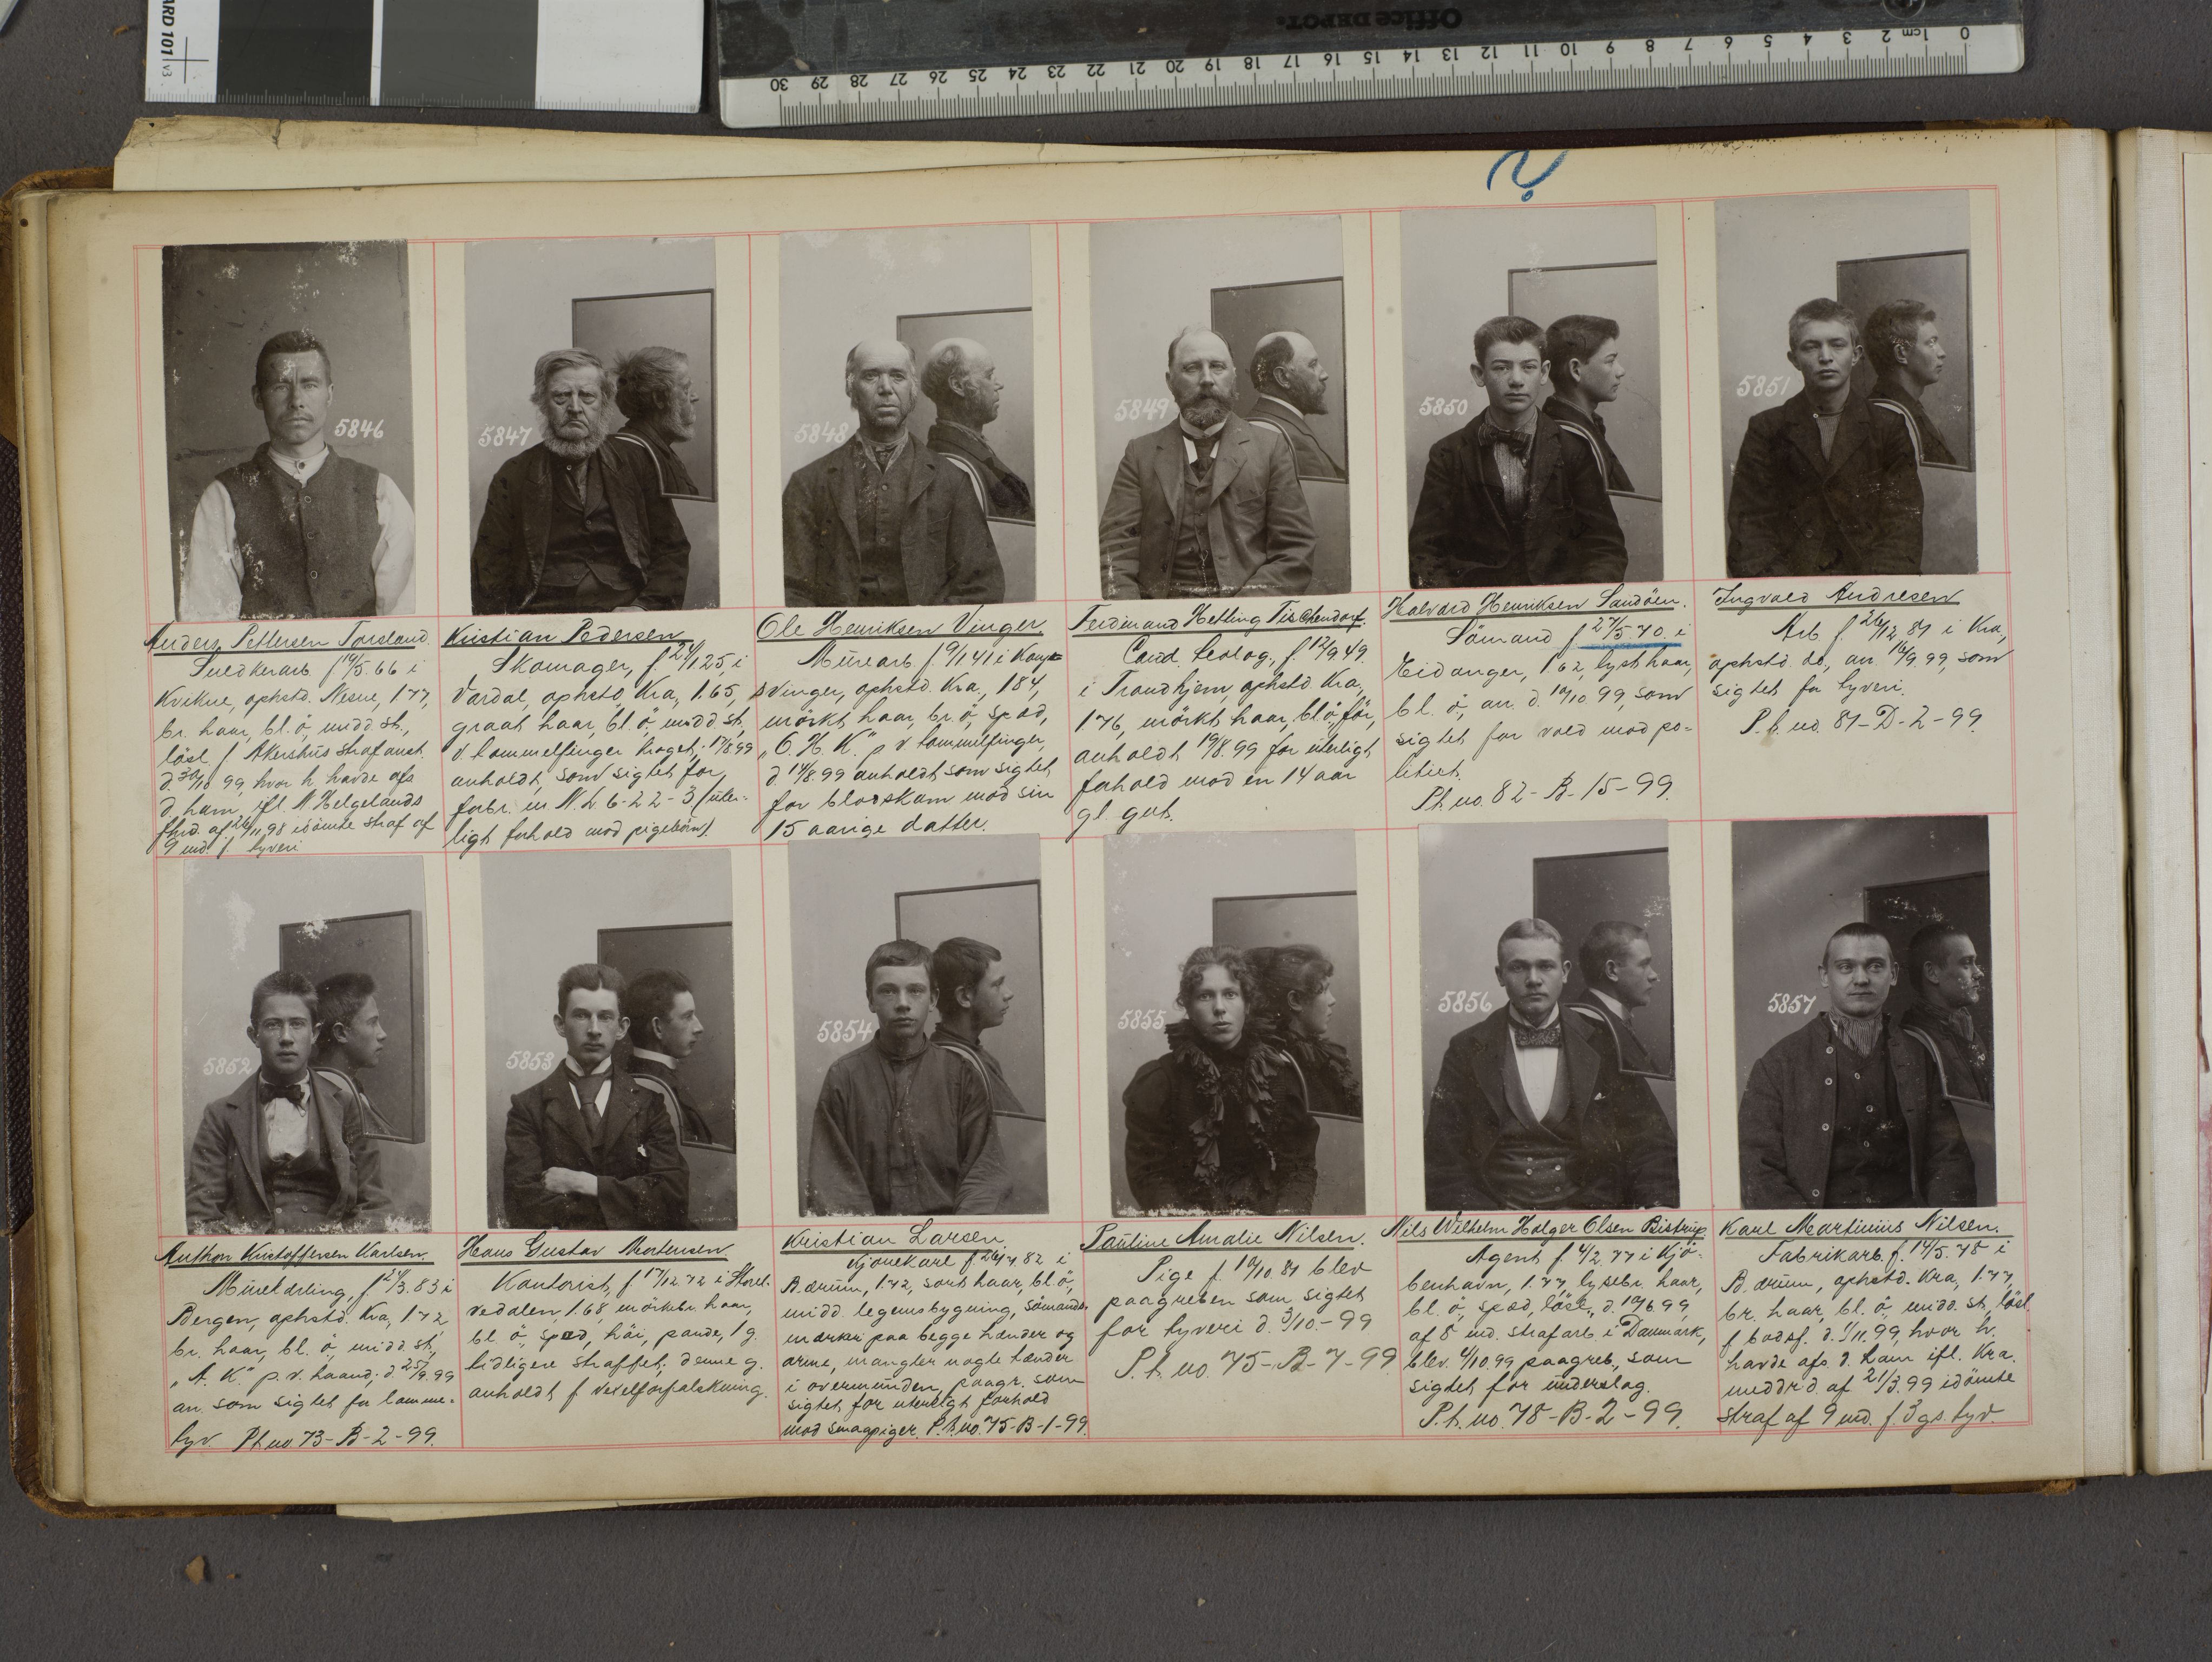 ARD 101 v3
Office DEPOT.
0 1cm 2 3 4 5 6 7 8 9 10 11 12 13 14 15 16 17 18 19 20 21 22 23 24 25 26 27 28 29 30
?
5846
5847
5848
5849
5850
5851
Anders Pettersen Torsland.
f 19/5.66 i
Kvikne, ophstd. Nesne, 1.77,
br. haar, bl. ö, midd st.,
lösl. f Akershus strafanst.
d. 30/10 99, hvor h havde afs
d. ham ifl. N. Helgelands
af 26/11.98 idömte straf af
9 md. f. tyveri
Kristian Pedersen
Skomager, f. 21/1.25, i
Vardal, ophstd Kra, 1.65,
graat haar, bl. ö, midd st,
v. tommelfinger kroget; 17/8.99
anholdt, som sigtet for
forbr. m N. L 6-22-3 (uter-
ligt forhold mod pigebörn)
Ole Henriksen Vinger
Murearb. f. 9/1 41 i Kongs-
vinger, ophstd. Kra., 184,
mörkt haar, br. ö, spæd,
"O. H. K." p v tommelfinger,
d 14/8.99 anholdt som sigtet
for blodskam mod sin
15 aarige datter.
Ferdinand Hetling Tischendorf.
Cand. teolog., f. 12/9 49.
i Trondhjem, ophstd. Kra,
1.76, mörkt haar, bl. ö, för,
anholdt 19/8.99 for uterligt
forhold mod en 14 aar
gl. gut.
Halvard Henriksen Sandöen.
Sömand f 27/5.70. i
Eidanger, 162, lyst haar,
bl. ö, an. d. 10/10 99, som
sigtet for vold mod po-
litiet.
P.h. no. 82-B-15-99.
Ingvald Andresen
Arb f. 26/12 81 i Kra,
ophstd. do., an. 16/9.99, som
sigtet for tyveri.
P.h. no. 81-D-2-99.
5852
5853
5854
5855
5856
5857
Anthon Kristoffersen Karlsen.
Murelærling, f 24/3.83 i
Bergen, ophstd. Kra, 1.72,
br. haar, bl. ö, midd st,
"A. K." p. v. haand; d. 25/9.99
an. som sigtet for lomme-
tyv. P.h no. 73-B-2-99.
Hans Gustav Mortensen
Kontorist, f 17/12 72 i Storel-
vedalen, 1.68, mörkebr. haar,
bl. ö, spæd, höi, pande, 1 g.
tidligere straffet; denne g.
anholdt f vexelforfalskning.
Kristian Larsen
Kjörekarl f. 26/7.82 i
Bærum, 1.72, sort haar, bl. ö,
midd legemsbygning, sömands-
mærker paa begge hænder og
arme, mangler nogle tænder
i overmunden, paagr. som
sigtet for uterligt forhold
mod smaapiger. P.h. no. 75-B-1-99.
Pauline Amalie Nilsen.
Pige f. 10/10.81 blev
paagreben som sigtet
for tyveri d. 3/10-99
P.h. no. 75-B-7-99
Nils Wilhelm Holger Olsen Bistrup.
Agent f. 4/2.77 i Kjö-
benhavn, 1.77, lysebr. haar,
bl. ö, spæd, lösl., d. 10/6.99,
af 8 md. strafarb. i Danmark,
blev. 4/10.99 paagreb., som
sigtet for underslag.
P.h. no. 78-B-2-99.
Karl Martinius Nilsen.
Fabrikarb. f. 14/5.75 i
Bærum, ophstd. Kra, 1.77,
br. haar, bl. ö, midd. st, lösl.
f bodsf. d. 1/11.99, hvor h.
havde afs. d. ham ifl. Kra.
meddrd. af 21/3.99 idömte
straf af 9 md. f. 3 gs. tyv.